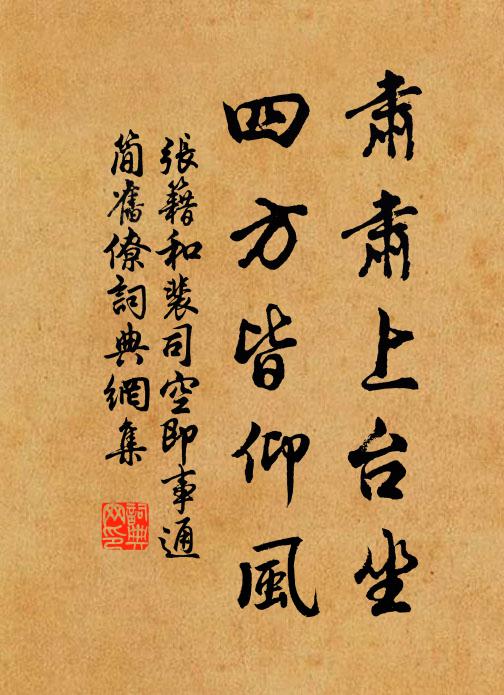 肅肅上台坐
四方皆仰風
張籍和裴司空即事通
簡舊僚詞典網集
詞典
网印